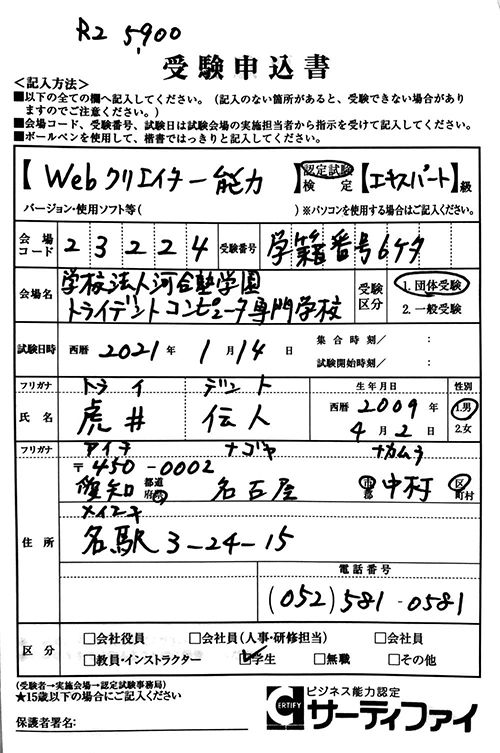 R2 5,900
受験申込書
＜記入方法＞
■以下の全ての欄へ記入してください。（記入のない箇所があると、受験できない場合があり
ますのでご注意ください。）
■会場コード、受験番号、試験日は試験会場の実施担当者から指示を受けて記入してください。
■ボールペンを使用して、楷書ではっきりと記入してください。
【Webクリエイター能力 認定試験 検定 【エキスパート】級
バージョン・使用ソフト等（ ）※パソコンを使用する場合はご記入ください。
会場コード 23224 受験番号 学籍番号6ケタ
会場名 学校法人河合塾学園 トライデントコンピュータ専門学校 受験区分 1.団体受験 2.一般受験
試験日時 西暦 2021年 1月14日 集合時刻／ ： 試験開始時刻／ ：
フリガナ トライ デント 生年月日 性別
氏名 虎井 伝人 西暦 2009年 4月2日 1.男 2.女
フリガナ アイチ ナゴヤ ナカムラ
住所 〒450-0002
愛知 都道府県 名古屋 市郡 中村 区町村
メイエキ
名駅3-24-15
電話番号
(052)581-0581
区分 □会社役員 □会社員（人事・研修担当） □会社員
□教員・インストラクター ☑学生 □無職 □その他
（受験者→実施会場→認定試験事務局）
★15歳以下の場合にご記入ください
保護者署名：
ビジネス能力認定
CERTIFY サーティファイ